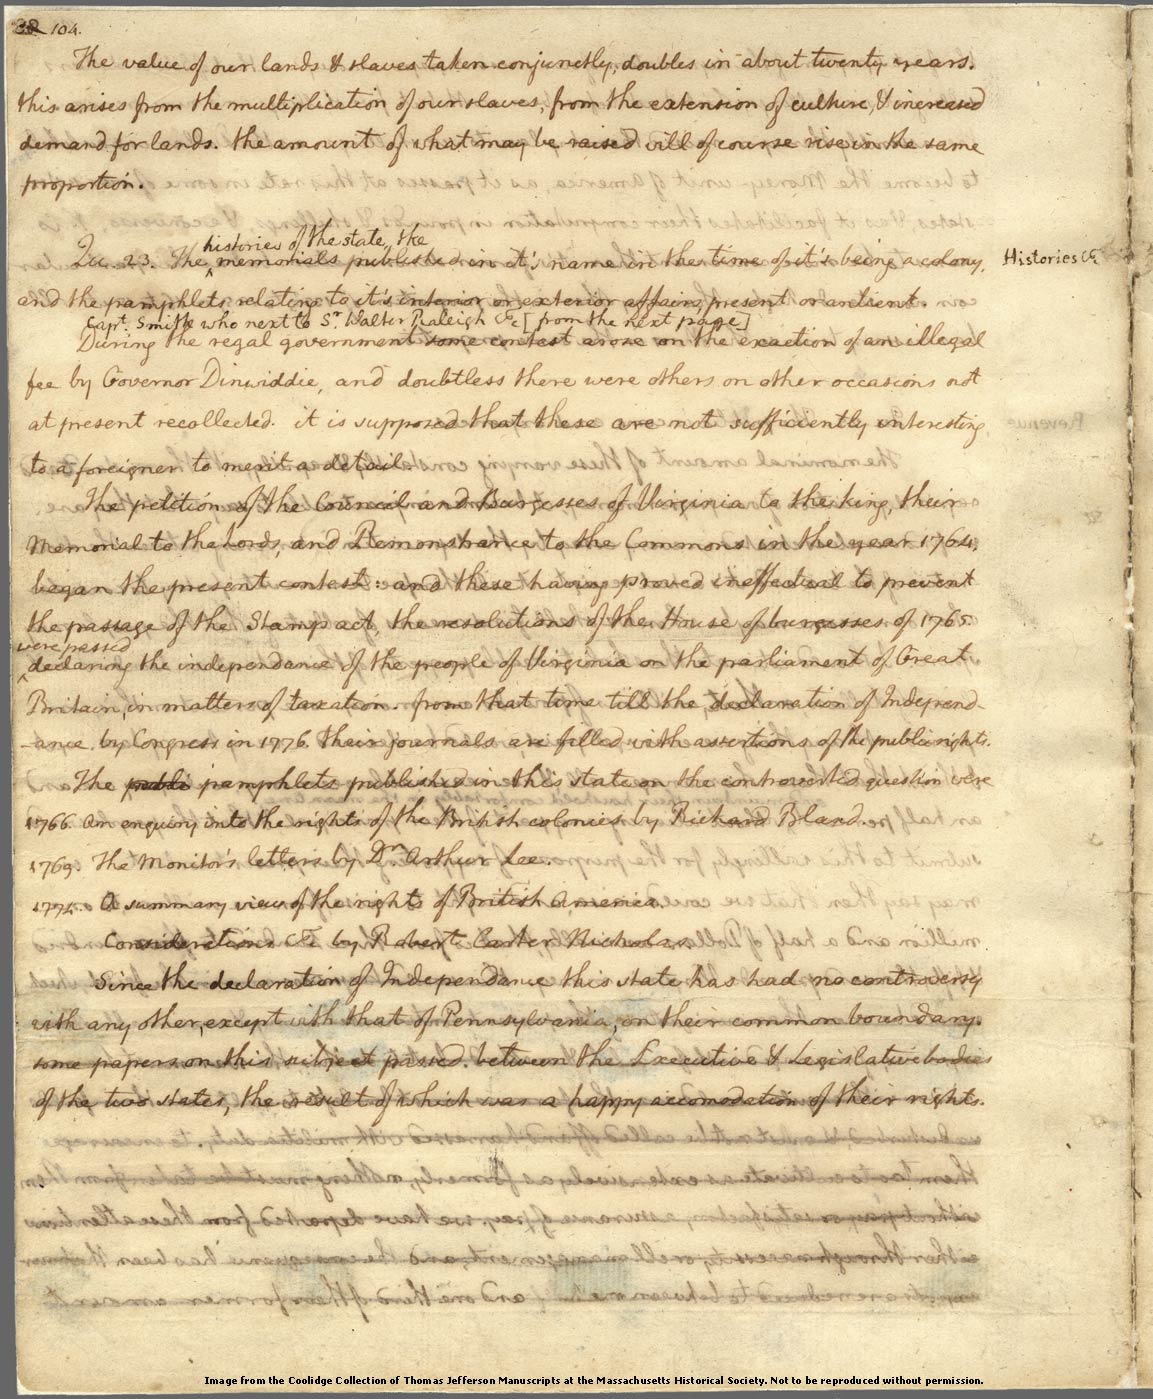 38 104.
The value of our lands & slaves taken conjunctly, doubles in about twenty years.
this arises from the multiplication of our slaves, from the extension of culture, & increased
demand for lands. the amount of what may be raised will of course rise in the same
proportion.
histories of the state, the
Qu. 23. The memorials published in it's name in the time of it's being a colony, Histories &c.
and the pamphlets relating to it's interior or exterior affairs present or antient.
Capt. Smith who next to Sr. Walter Raleigh &c [from the next page]
During the regal government some contest arose on the exaction of an illegal
fee by Governor Dinwiddie, and doubtless there were others on other occasions not
at present recollected. it is supposed that these are not sufficiently interesting
to a foreigner to merit a detail.
The petition of the Council and Burgesses of Virginia to the king, their
Memorial to the Lords, and Remonstrance to the Commons in the year 1764,
began the present contest: and these having proved ineffectual to prevent
the passage of the Stamp act, the resolutions of the House of burgesses of 1765.
were passed
declaring the independance of the people of Virginia on the parliament of Great
Britain, in matters of taxation. from that time till the declaration of Independ-
-ance by Congress in 1776. their journals are filled with assertions of the public rights.
The publi pamphlets published in this state on the controverted question were
1766. an enquiry into the rights of the British colonies by Richard Bland.
1769. The Monitor's letters by Dr. Arthur Lee.
1774. A summary view of the rights of British America.
Considerations &c by Robert Carter Nicholas.
Since the declaration of Independance this state has had no controversy
with any other, except with that of Pennsylvania, on their common boundary.
some papers on this subject passed between the Executive & Legislative bodies
of the two states, the result of which was a happy accomodation of their rights.
Image from the Coolidge Collection of Thomas Jefferson Manuscripts at the Massachusetts Historical Society. Not to be reproduced without permission.